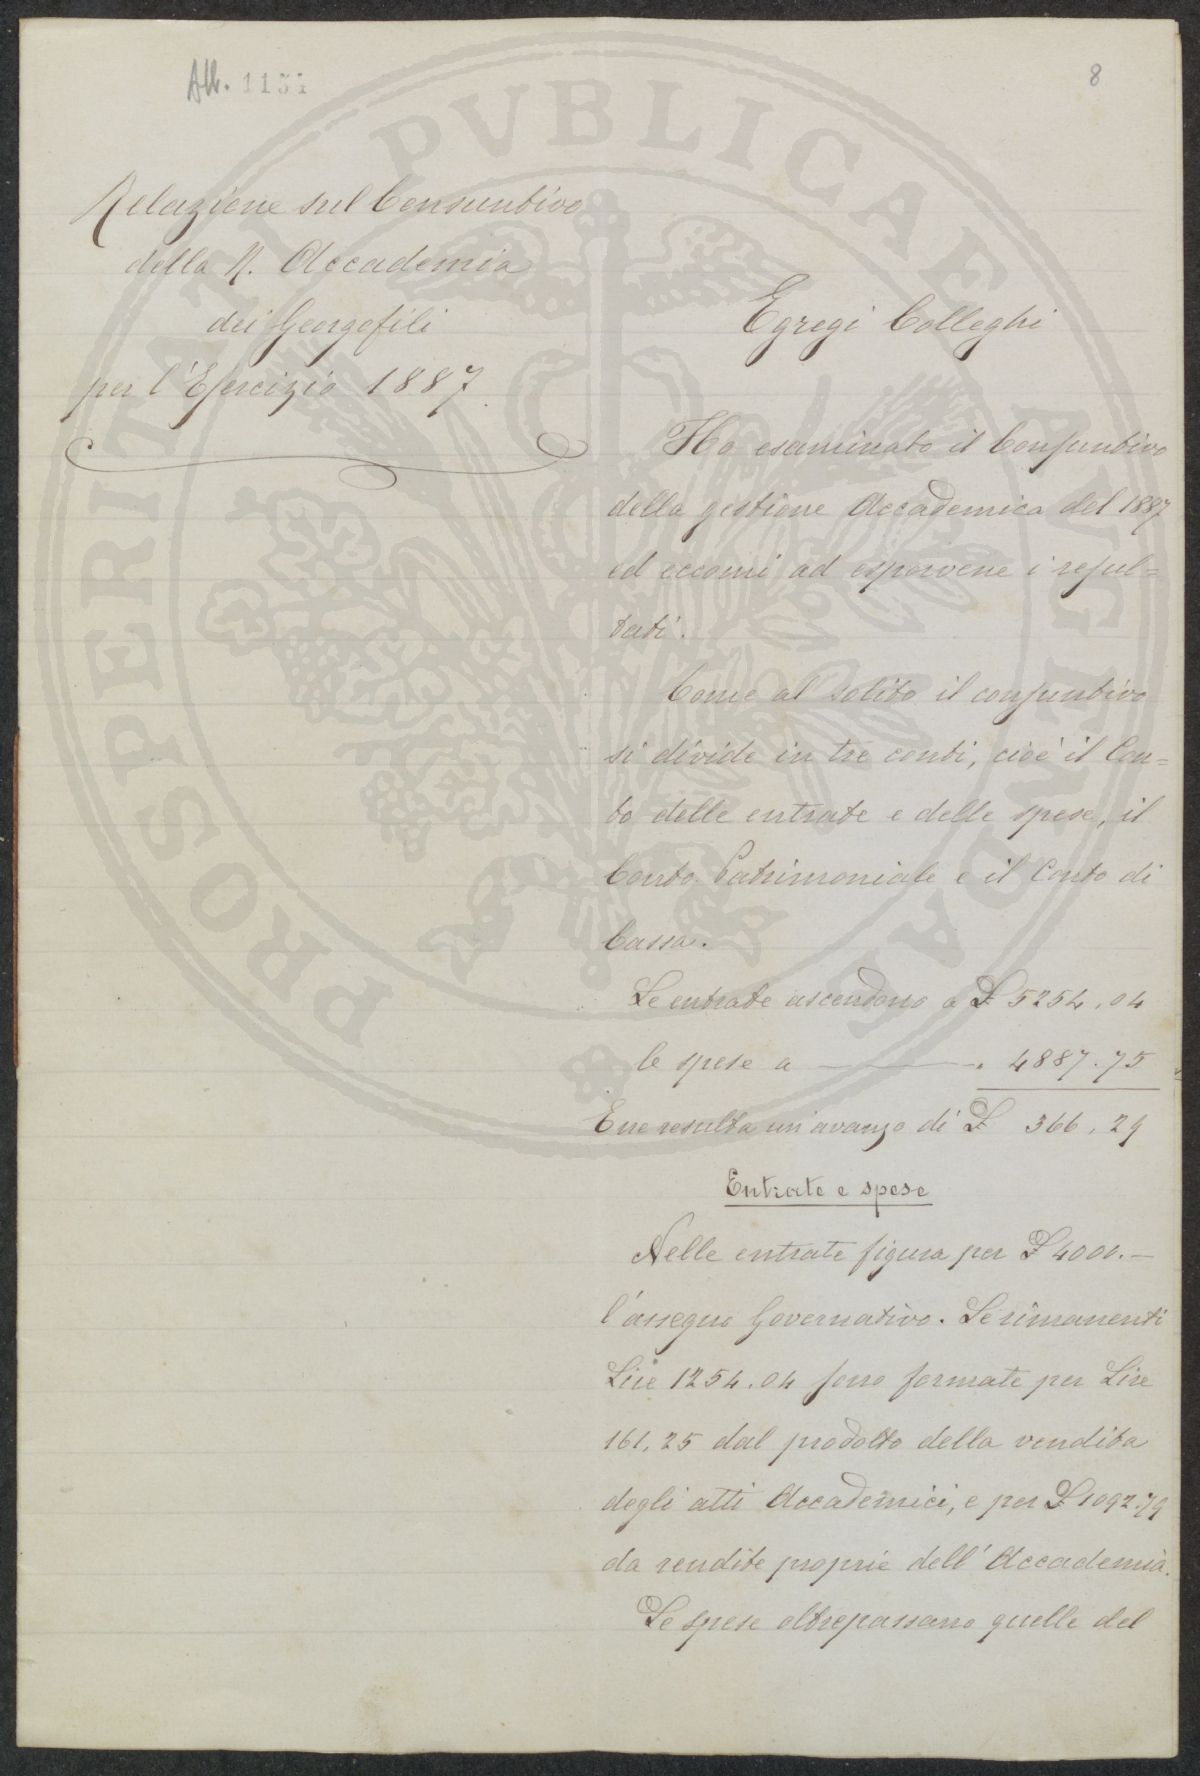 All. 1151
8
Relazione sul Consuntivo
della R. Accademia
dei Georgofili
per l'Esercizio 1887.
Egregi Colleghi
Ho esaminato il Consuntivo
della gestione Accademica del 1887
ed eccomi ad esporvene i resul=
tati.
Come al solito il consuntivo
si divide in tre conti, cioè il Con=
to delle entrate e delle spese, il
Conto Patrimoniale e il Conto di
Cassa.
Le entrate ascendono a £ 5254.04
le spese a — . 4887.75
E ne resulta un'avanzo di £ 366.29
Entrate e spese
Nelle entrate figura per £ 4000.—
l'assegno Governativo. Le rimanenti
Lire 1254.04 sono formate per Lire
161,25 dal prodotto della vendita
degli atti Accademici, e per £ 1092.79
da rendite proprie dell'Accademia.
Le spese oltrepassano quelle del
PROSPERITATI PVBLICAE AVGENDAE